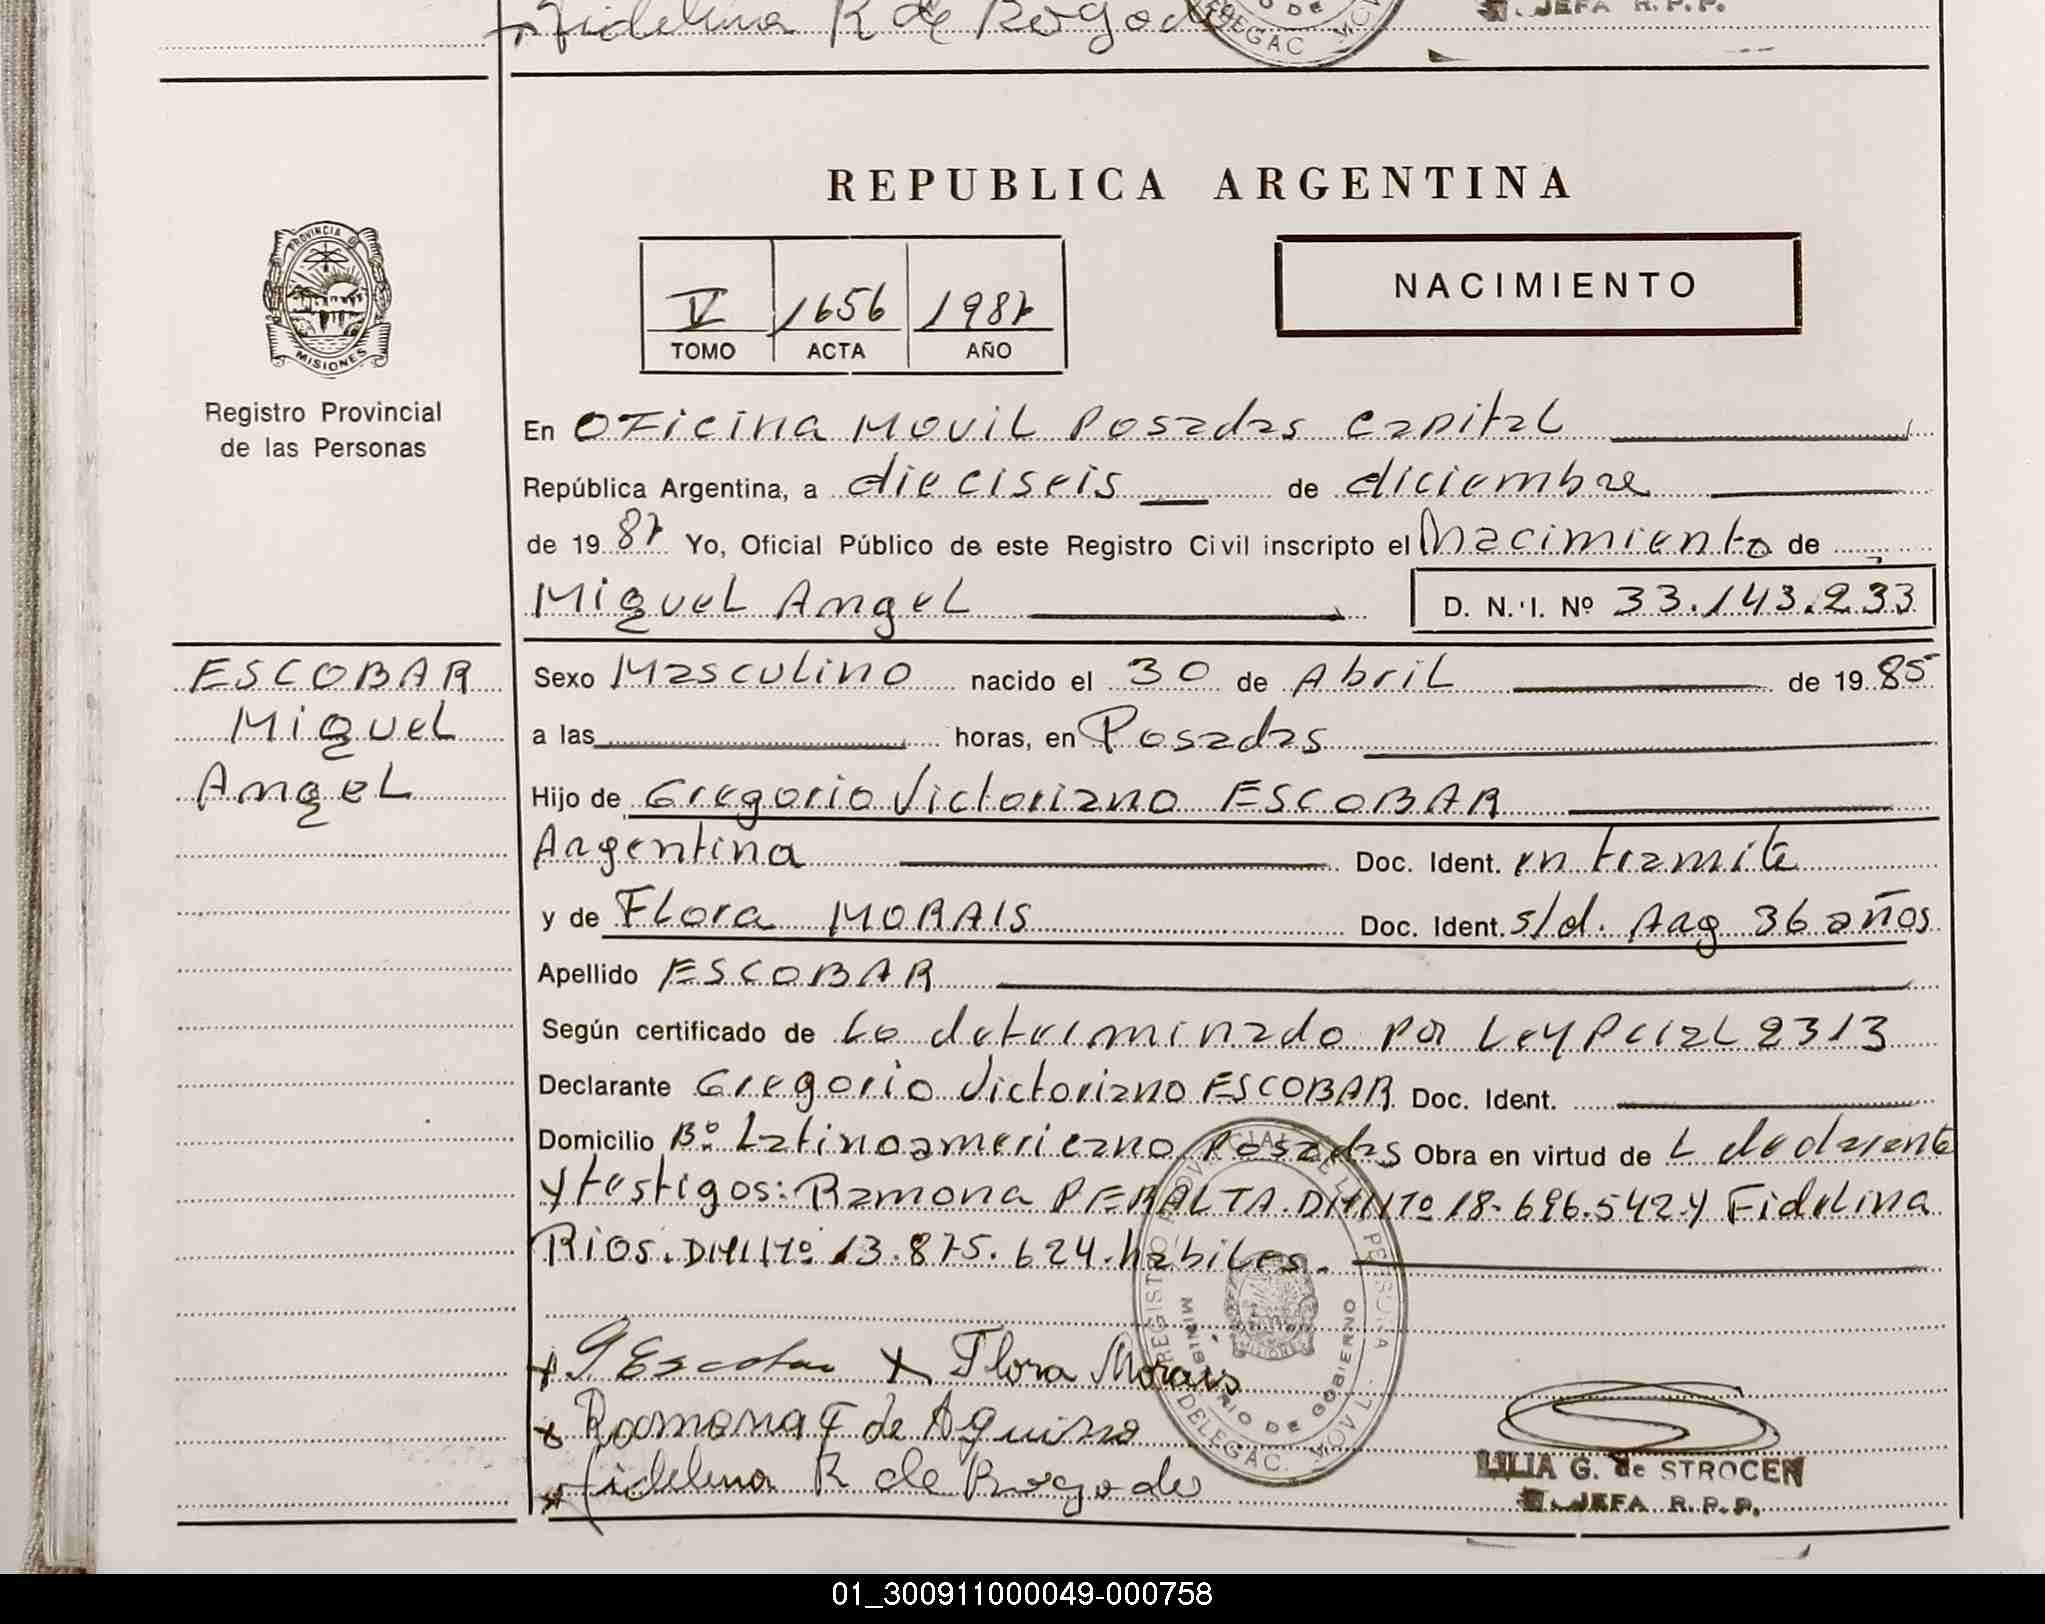 Fidelina R de Rogodo
DELEGAC. MOVIL
JEFA R.P.P.
PROVINCIA DE
MISIONES
Registro Provincial
de las Personas
REPUBLICA ARGENTINA
V 1656 1987
TOMO ACTA AÑO
NACIMIENTO
En OFicina MOVIL Posadas Capital
República Argentina, a dieciseis de diciembre
de 1987 Yo, Oficial Público de este Registro Civil inscripto el Nacimiento de
Miguel Angel D. N. I. Nº 33.143.233
ESCOBAR
Miguel
Angel
Sexo Masculino nacido el 30 de Abril de 1985
a las horas, en Posadas
Hijo de Gregorio Victoriano ESCOBAR
Argentina Doc. Ident. en tramite
y de Flora MORAIS Doc. Ident. s/d. Arg 36 años
Apellido ESCOBAR
Según certificado de Lo determinado por Ley Pcial 2313
Declarante Gregorio Victoriano ESCOBAR Doc. Ident.
Domicilio Bº Latinoamericano Posadas Obra en virtud de L declarante
y testigos: Ramona PERALTA. DNI Nº 18.696.542 y Fidelina
Rios. DNI Nº 13.875.624. habiles.
REGISTRO PROVINCIAL DE LAS PERSONAS
MINISTERIO DE GOBIERNO
DELEGAC. MOVIL
MISIONES
x G Escobar x Flora Morais
x Ramona P de Aquino
x Fidelina R de Rogodo
LILIA G. de STROCEN
JEFA R.P.P.
01_300911000049-000758